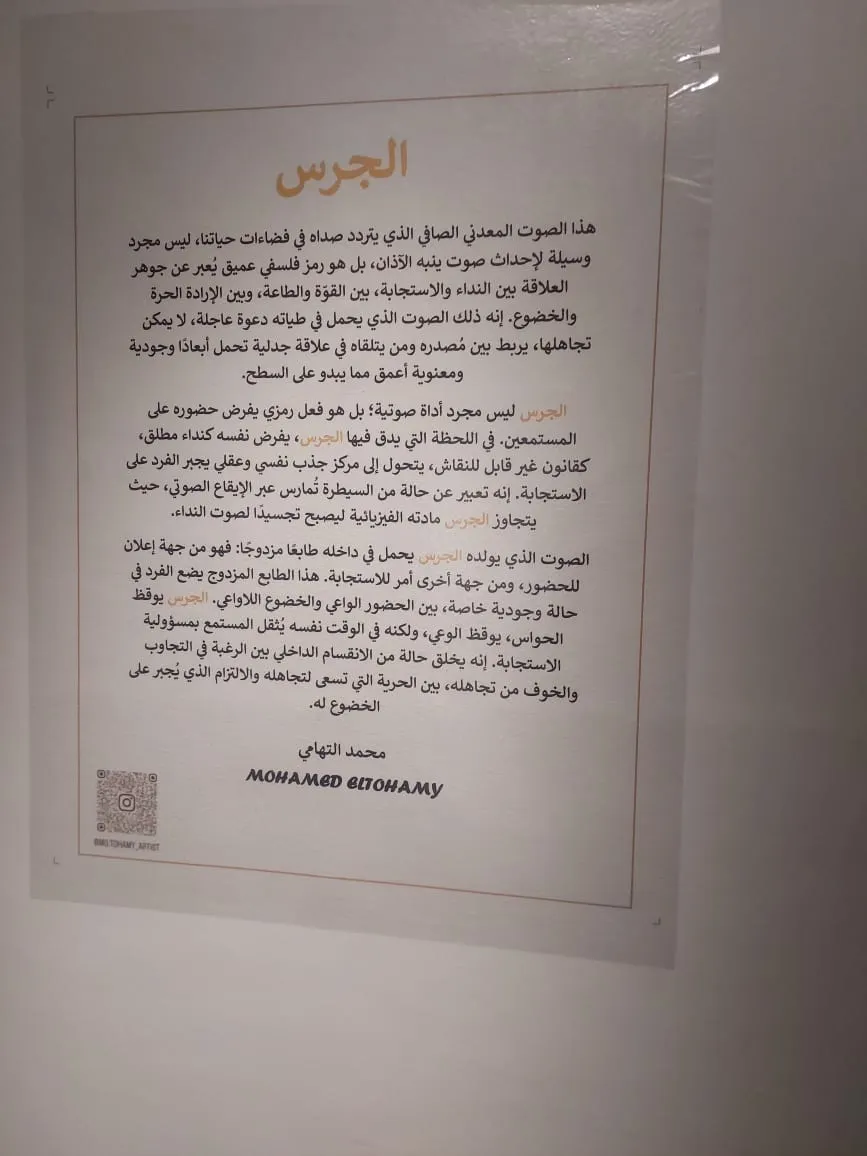 الجرس
هذا الصوت المعدني الصافي الذي يتردد صداه في فضاءات حياتنا، ليس مجرد
وسيلة لإحداث صوت ينبه الآذان، بل هو رمز فلسفي عميق يُعبر عن جوهر
العلاقة بين النداء والاستجابة، بين القوّة والطاعة، وبين الإرادة الحرة
والخضوع. إنه ذلك الصوت الذي يحمل في طياته دعوة عاجلة، لا يمكن
تجاهلها، يربط بين مُصدره ومن يتلقاه في علاقة جدلية تحمل أبعادًا وجودية
ومعنوية أعمق مما يبدو على السطح.
الجرس ليس مجرد أداة صوتية؛ بل هو فعل رمزي يفرض حضوره على
المستمعين. في اللحظة التي يدق فيها الجرس، يفرض نفسه كنداء مطلق،
كقانون غير قابل للنقاش، يتحول إلى مركز جذب نفسي وعقلي يجبر الفرد على
الاستجابة. إنه تعبير عن حالة من السيطرة تُمارس عبر الإيقاع الصوتي، حيث
يتجاوز الجرس مادته الفيزيائية ليصبح تجسيدًا لصوت النداء.
الصوت الذي يولده الجرس يحمل في داخله طابعًا مزدوجًا: فهو من جهة إعلان
للحضور، ومن جهة أخرى أمر للاستجابة. هذا الطابع المزدوج يضع الفرد في
حالة وجودية خاصة، بين الحضور الواعي والخضوع اللاواعي. الجرس يوقظ
الحواس، يوقظ الوعي، ولكنه في الوقت نفسه يُثقل المستمع بمسؤولية
الاستجابة. إنه يخلق حالة من الانقسام الداخلي بين الرغبة في التجاوب
والخوف من تجاهله، بين الحرية التي تسعى لتجاهله والالتزام الذي يُجبر على
الخضوع له.
محمد التهامي
MOHAMED ELTOHAMY
@MO.TOHAMY_ARTIST